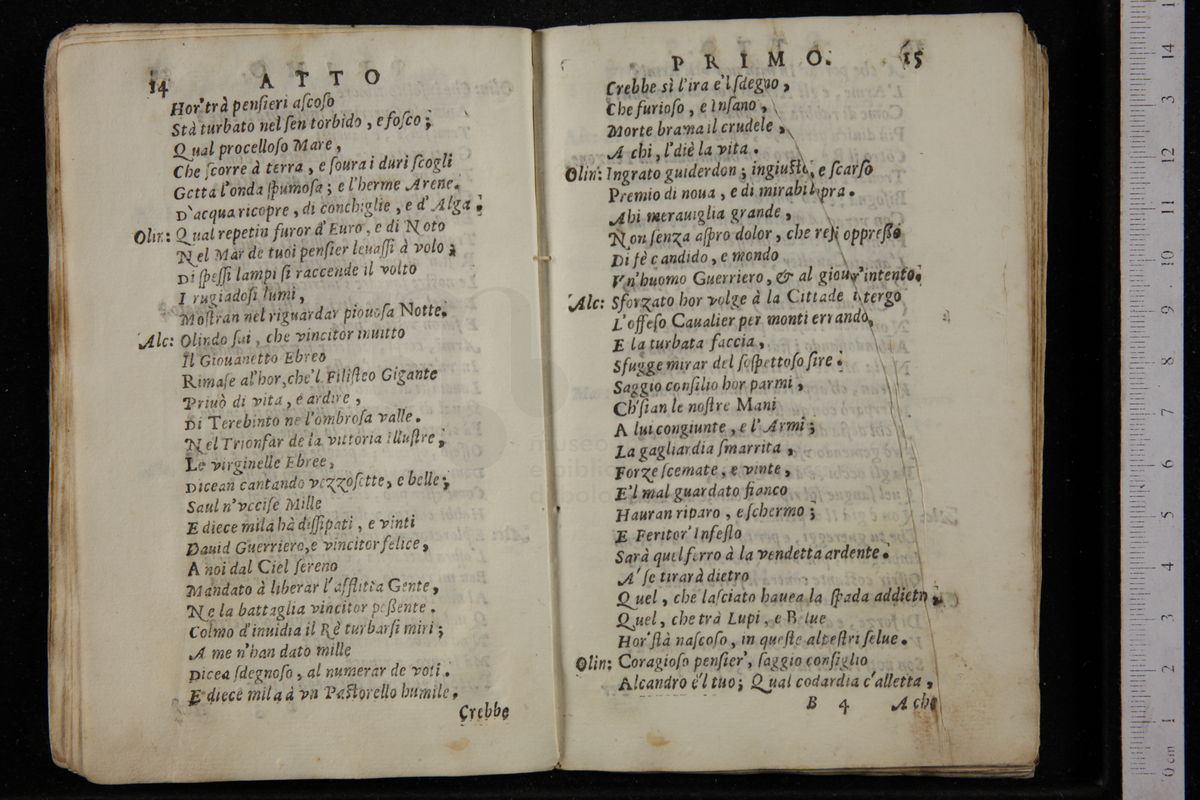 14 ATTO
Hor'trà pensieri ascoso
Stà turbato nel sen torbido, e fosco;
Qual procelloso Mare,
Che scorre à terra, e soura i duri scogli
Getta l'onda spumosa; e l'herme Arene.
D'acqua ricopre, di conchiglie, e d'Alga.
Olin: Qual repetin furor d'Euro, e di Noto
Nel Mar de tuoi pensier leuassi à volo;
Di spessi lampi si raccende il volto
I rugiadosi lumi,
Mostran nel riguardar piouosa Notte.
Alc: Olindo sai, che vincitor inuitto
Il Giouanetto Ebreo
Rimase al'hor, che'l Filisteo Gigante
Priuò di vita, e ardire,
Di Terebinto ne l'ombrosa valle.
Nel Trionfar de la vittoria illustre,
Le virginelle Ebree,
Dicean cantando vezzosette, e belle;
Saul n'vccise Mille
E diece mila hà dissipati, e vinti
Dauid Guerriero, e vincitor felice,
A noi dal Ciel sereno
Mandato à liberar l'afflitta Gente,
Ne la battaglia vincitor possente.
Colmo d'inuidia il Rè turbarsi miri;
A me n'han dato mille
Dicea sdegnoso, al numerar de voti.
E diece mila à vn Pastorello humile,
Crebbe
PRIMO. 15
Crebbe sì l'ira e'l sdegno,
Che furioso, e Insano,
Morte brama il crudele,
A chi, l'diè la vita.
Olin: Ingrato guiderdon; ingiusto, e scarso
Premio di noua, e di mirabil pra.
Ahi merauiglia grande,
Non senza aspro dolor, che resi oppresso
Di fè candido, e mondo
Vn'huomo Guerriero, & al giouar'intento.
Alc: Sforzato hor volge à la Cittade il tergo
L'offeso Caualier per monti errando,
E la turbata faccia,
Sfugge mirar del sospettoso sire.
Saggio consilio hor parmi,
Ch'sian le nostre Mani
A lui congiunte, e l'Armi;
La gagliardia smarrita,
Forze scemate, e vinte,
E'l mal guardato fianco
Hauran riparo, e schermo;
E Feritor'Infesto
Sarà quel ferro à la vendetta ardente.
A' se tirarà dietro
Quel, che lasciato hauea la spada addietro,
Quel, che trà Lupi, e Belue
Hor'stà nascoso, in queste alpestri selue.
Olin: Coragioso pensier', saggio consiglio
Alcandro è'l tuo; Qual codardia c'alletta,
B 4 A che